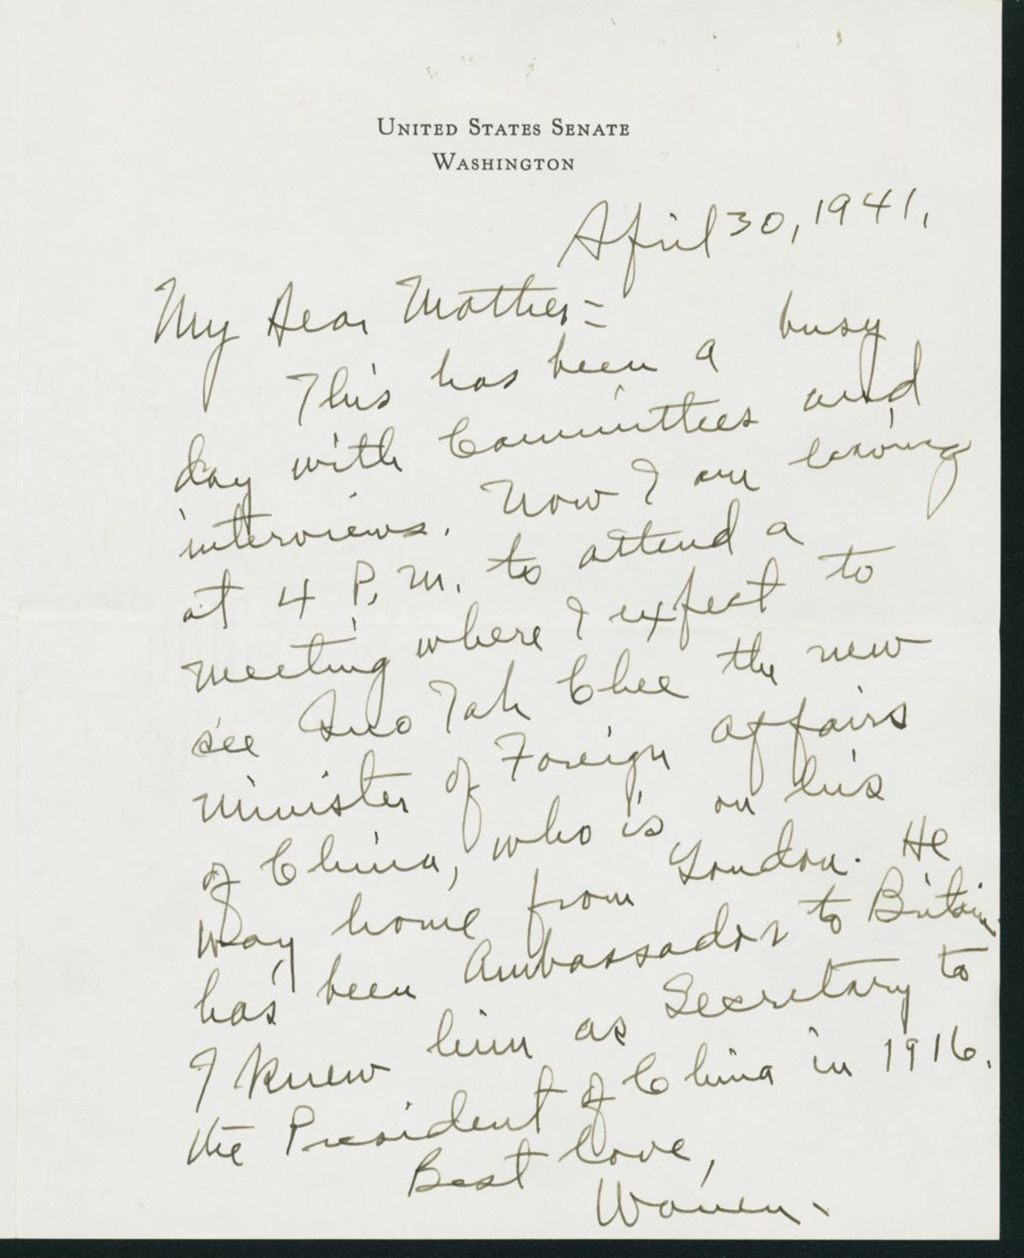 UNITED STATES SENATE
WASHINGTON
April 30, 1941.
My dear Mother =
This has been a busy
day with Committees and
interviews. Now I am leaving
at 4 P. M. to attend a
meeting where I expect to
see Quo Tah Chee the new
minister of Foreign affairs
of China, who is on his
way home from London. He
has been Ambassador to Britain.
I knew him as Secretary to
the President of China in 1916.
Best love,
Warren.